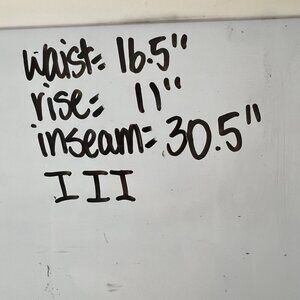 waist: 16.5"
rise: 11"
inseam: 30.5"
III